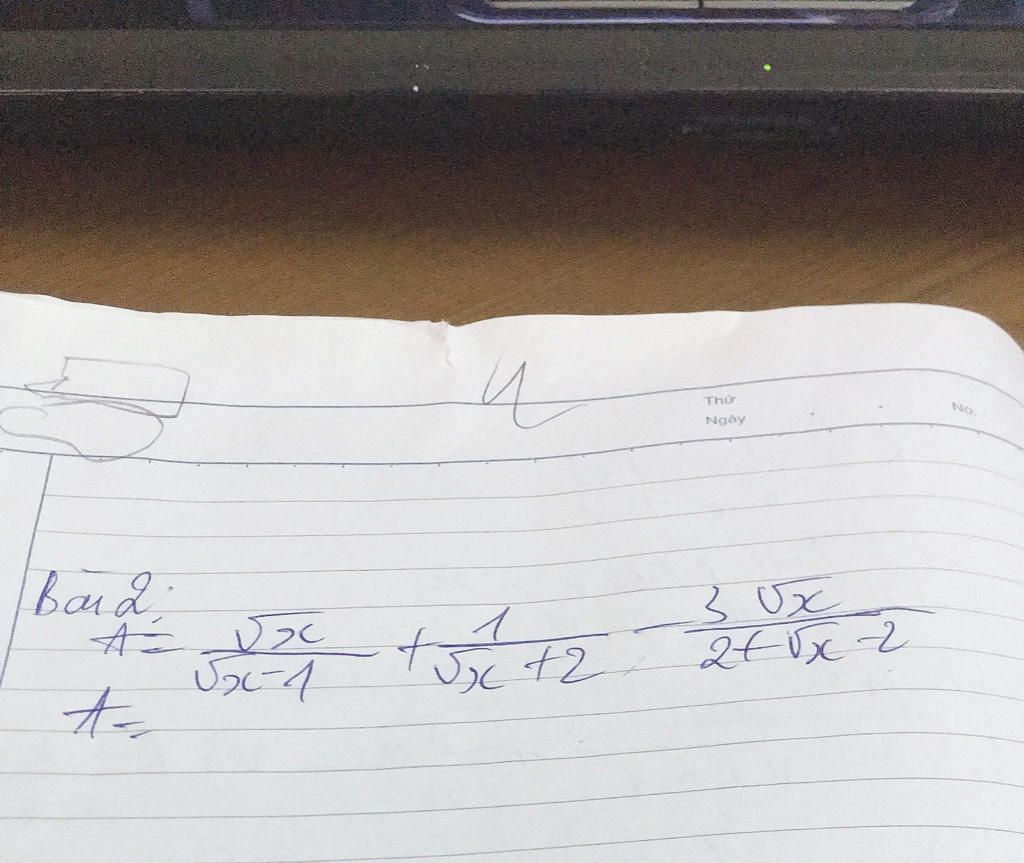 Thứ
Ngày
No.
Bài 2:
A = √x/(√x-1) + 1/(√x+2) - 3√x/(2+√x-2)
A =